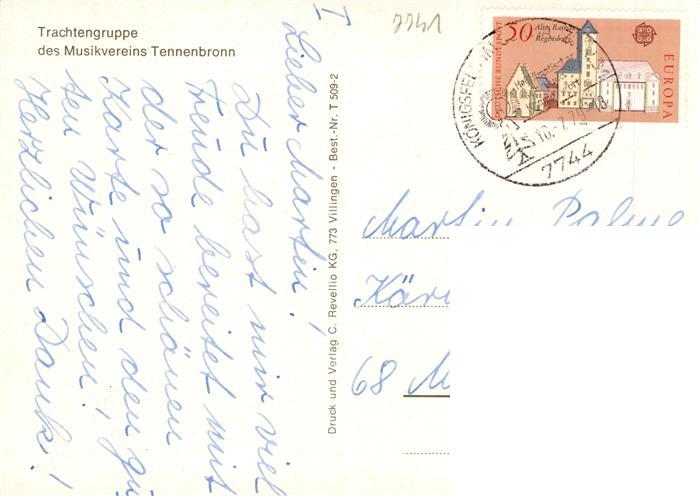 Trachtengruppe
des Musikvereins Tennenbronn
I
Lieber Martin!
Du hast mir viel
Freude bereitet mit
der so schönen
Karte und den gu
ten Wünschen!
Herzlichen Dank!
Druck und Verlag C. Revellio KG, 773 Villingen - Best.-Nr. T 509-2
7741
50 Altes Rathaus
Regensburg
DEUTSCHE BUNDESPOST
EUROPA
KÖNIGSFELD
7744
Martin Palme
Kär
68 M